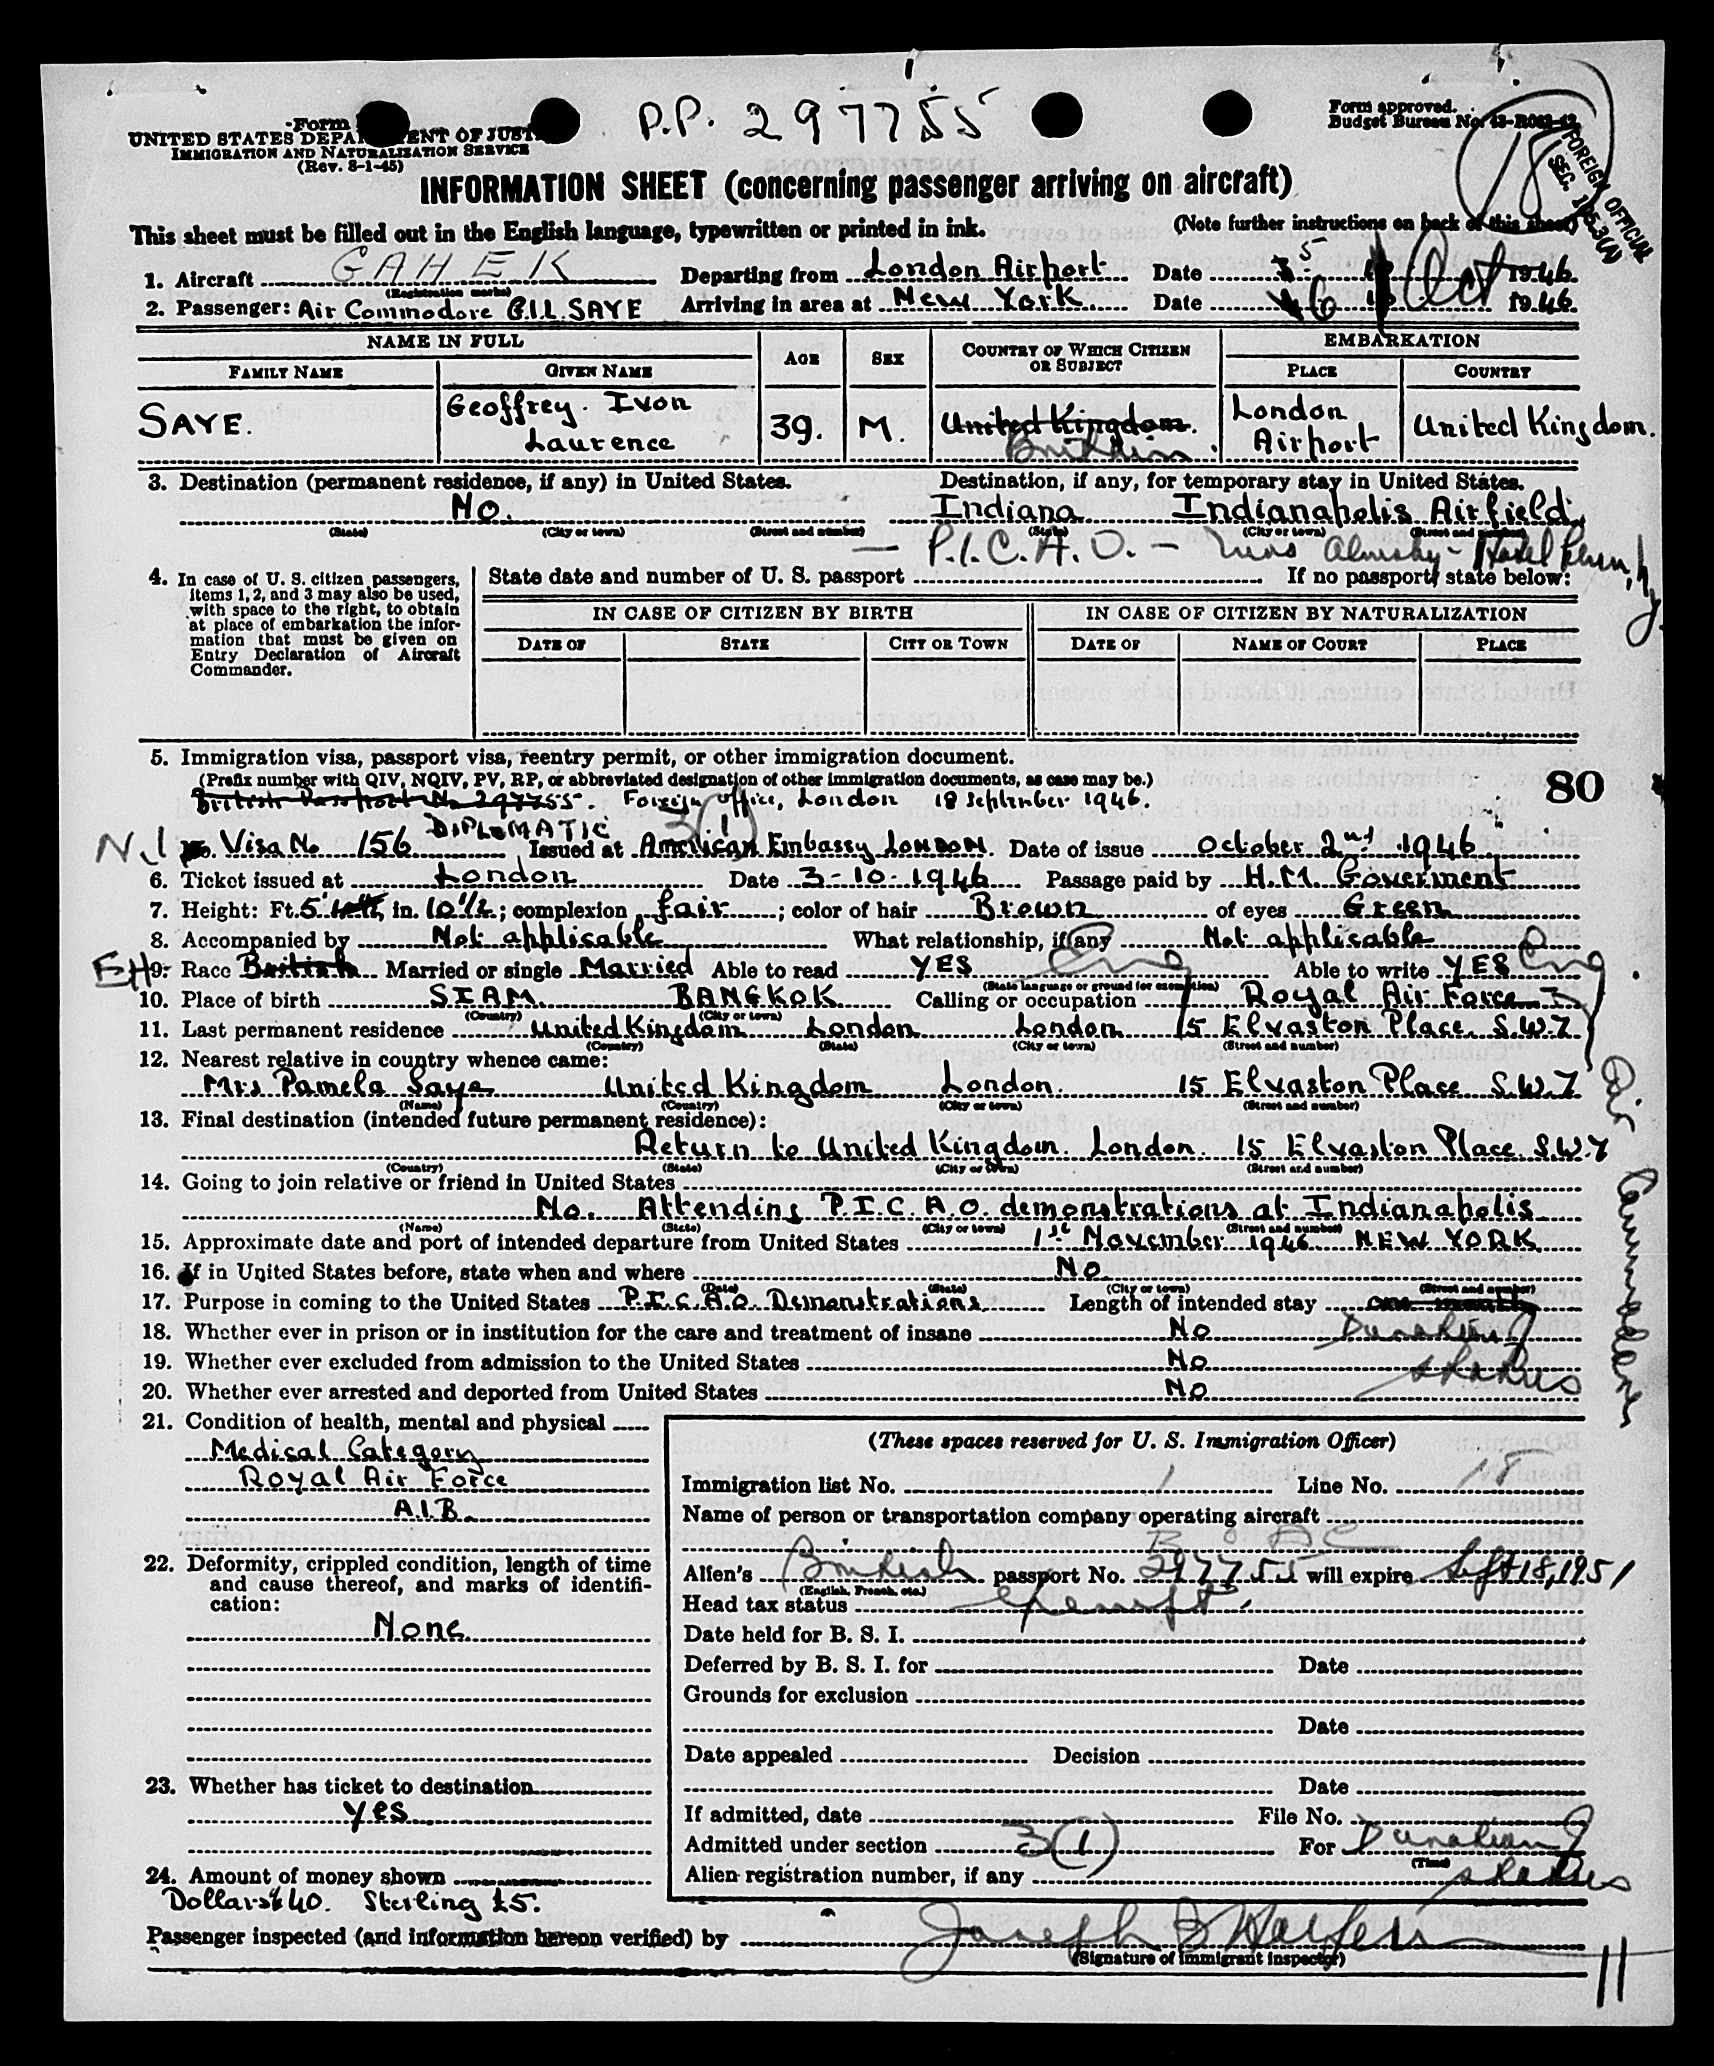 P.P. 297755
Form
UNITED STATES DEPARTMENT OF JUST
IMMIGRATION AND NATURALIZATION SERVICE
(Rev. 8-1-45)
Form approved.
Budget Bureau No. 43-R063-42
18
FOREIGN OFFICIAL
SEC.
INFORMATION SHEET (concerning passenger arriving on aircraft)
This sheet must be filled out in the English language, typewritten or printed in ink.
(Note further instructions on back of this sheet)
1. Aircraft GAHEK Departing from London Airport Date 5 Oct 1946
(Registration marks)
2. Passenger: Air Commodore G.I.L. SAYE Arriving in area at New York Date 6 1946
NAME IN FULL AGE SEX COUNTRY OF WHICH CITIZEN OR SUBJECT EMBARKATION
FAMILY NAME GIVEN NAME PLACE COUNTRY
SAYE. Geoffrey. Ivon Laurence 39. M. United Kingdom. British London Airport United Kingdom.
3. Destination (permanent residence, if any) in United States. Destination, if any, for temporary stay in United States.
No. Indiana Indianapolis Airfield.
(State) (City or town) (Street and number) (State) (City or town) (Street and number)
— P.I.C.A.O. — Hotel Penn, N.Y.
4. In case of U. S. citizen passengers, items 1, 2, and 3 may also be used, with space to the right, to obtain at place of embarkation the information that must be given on Entry Declaration of Aircraft Commander.
State date and number of U. S. passport If no passport, state below:
IN CASE OF CITIZEN BY BIRTH IN CASE OF CITIZEN BY NATURALIZATION
DATE OF STATE CITY OR TOWN DATE OF NAME OF COURT PLACE
5. Immigration visa, passport visa, reentry permit, or other immigration document.
(Prefix number with QIV, NQIV, PV, RP, or abbreviated designation of other immigration documents, as case may be.)
80
British Passport No 297755. Foreign Office, London 18 September 1946.
DIPLOMATIC 3(1)
N.I. No. Visa No 156 Issued at American Embassy LONDON. Date of issue October 2nd 1946
6. Ticket issued at London Date 3-10-1946 Passage paid by H.M. Goverment
7. Height: Ft. 5 in. 10 1/2; complexion fair; color of hair Brown of eyes Green
8. Accompanied by Not applicable What relationship, if any Not applicable
EH 9. Race British Married or single Married Able to read YES Eng Able to write YES Eng.
(State language or ground for exemption)
10. Place of birth SIAM. BANGKOK Calling or occupation Royal Air Force
(Country) (City or town)
Air Commodore
11. Last permanent residence United Kingdom London London 15 Elvaston Place. S.W.7
(Country) (State) (City or town) (Street and number)
12. Nearest relative in country whence came:
Mrs Pamela Saye United Kingdom London. 15 Elvaston Place S.W.7
(Name) (Country) (City or town) (Street and number)
13. Final destination (intended future permanent residence):
Return to United Kingdom. London. 15 Elvaston Place. S.W.7
(Country) (State) (City or town) (Street and number)
14. Going to join relative or friend in United States
No. Attending P.I.C.A.O. demonstrations at Indianapolis
(Name) (State) (City or town) (Street and number)
15. Approximate date and port of intended departure from United States 1st November 1946 NEW YORK
16. If in United States before, state when and where No
(Date) (State) (City or town) (Street and number)
17. Purpose in coming to the United States P.I.C.A.O. Demonstrations Length of intended stay one month
18. Whether ever in prison or in institution for the care and treatment of insane No Duration of
19. Whether ever excluded from admission to the United States No status
20. Whether ever arrested and deported from United States No
21. Condition of health, mental and physical
Medical Category
Royal Air Force
A.1.B.
22. Deformity, crippled condition, length of time and cause thereof, and marks of identification:
None
23. Whether has ticket to destination
yes
24. Amount of money shown
Dollars $40. Sterling £5.
(These spaces reserved for U. S. Immigration Officer)
Immigration list No. 1 Line No. 18
Name of person or transportation company operating aircraft
B O A C
Alien's British passport No. 297755 will expire Sept 18, 1951
(English, French, etc.)
Head tax status exempt.
Date held for B. S. I.
Deferred by B. S. I. for Date
Grounds for exclusion
Date
Date appealed Decision
Date
If admitted, date File No.
Admitted under section 3(1) For Duration of
(Time)
Alien registration number, if any status
Passenger inspected (and information hereon verified) by Joseph
(Signature of immigrant inspector)
11